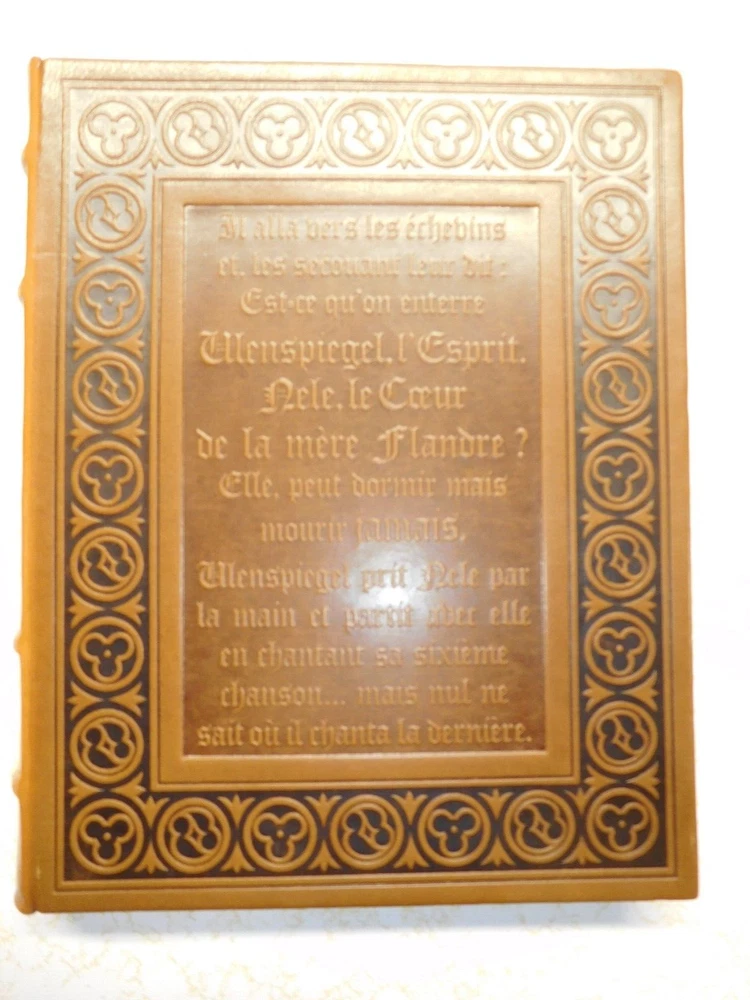 Il alla vers les échevins
et, les secouant leur dit :
Est-ce qu'on enterre
Ulenspiegel, l'Esprit,
Nele, le Cœur
de la mère Flandre ?
Elle, peut dormir mais
mourir JAMAIS.
Ulenspiegel prit Nele par
la main et partit avec elle
en chantant sa sixième
chanson... mais nul ne
sait où il chanta la dernière.